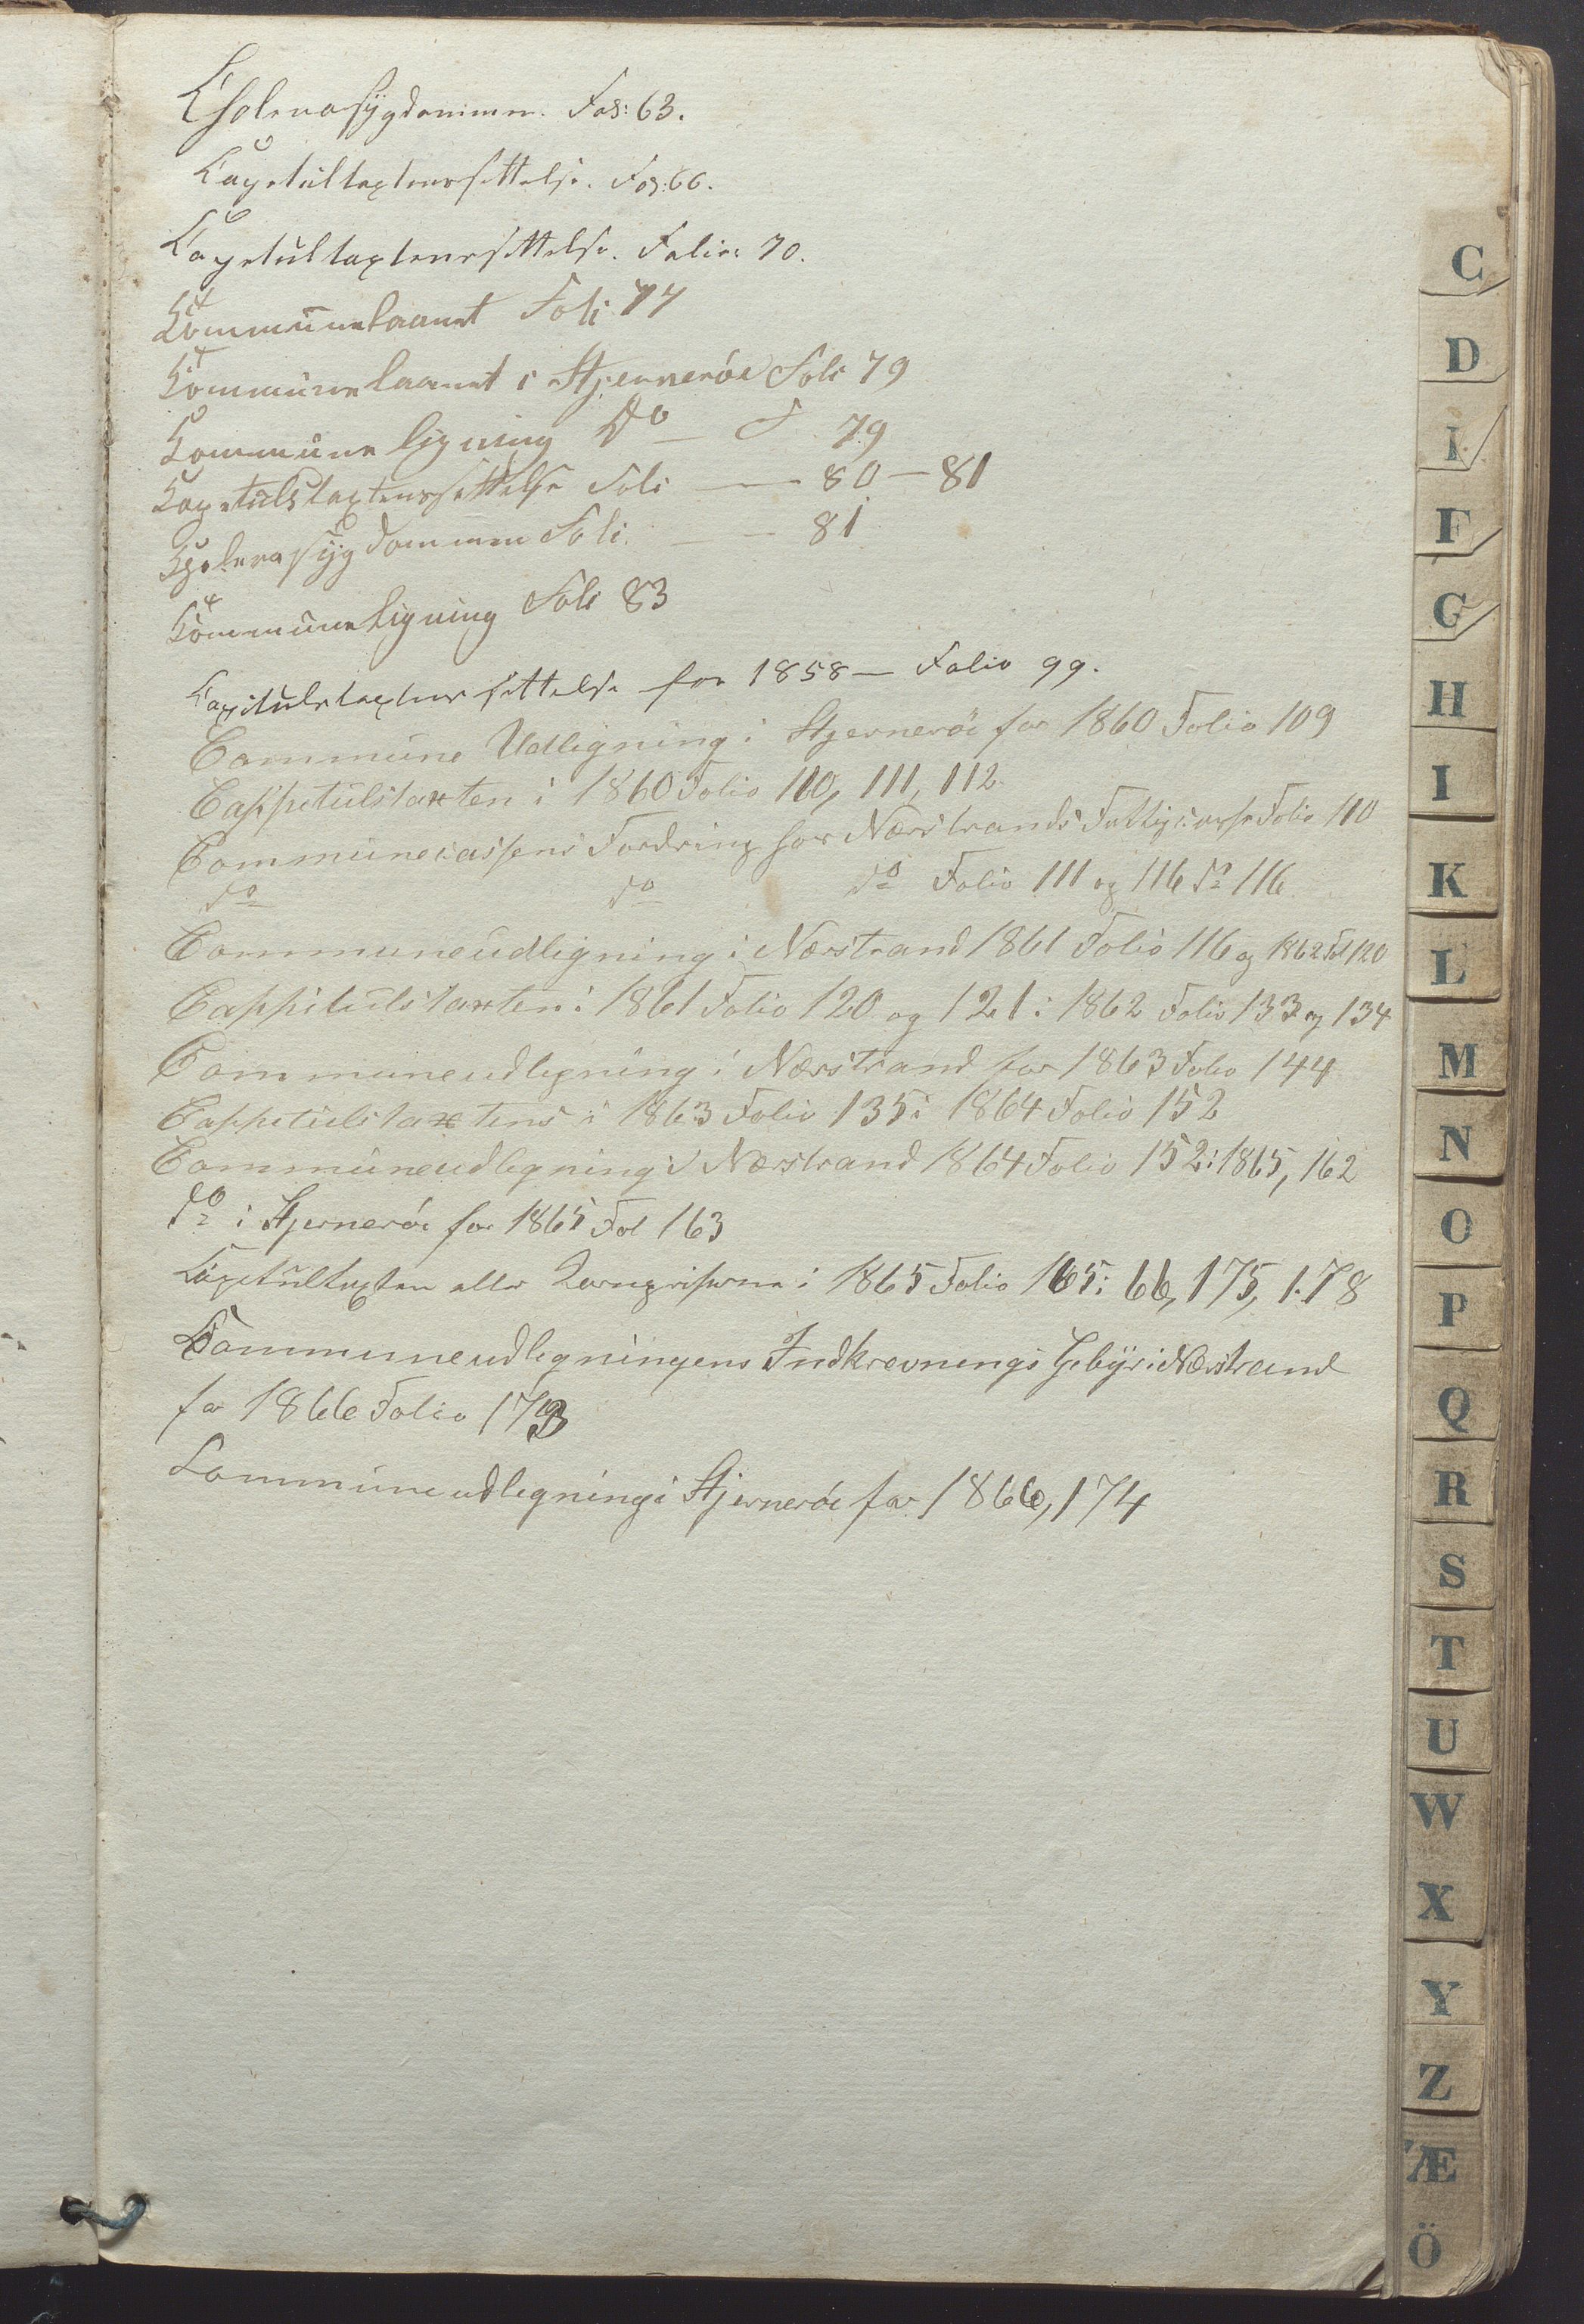 Cholerasygdommen. Fol: 63.
Capitultaxtenssettelse. Fol: 66.
Capitultaxtenssettelse. Folio: 70.
Kommunelaanet Foli 77
Kommunelaanet i Hjernerøe Foli 79
Kommune ligning Do — F 79
Kapitulstaxtenssettelse Foli — 80 — 81
Kholerasygdommen Foli. — 81
Kommuneligning Foli 83
Capitulstaxtens settelse for 1858 — Folio 99.
Commune Udligning i Hjernerøe for 1860 Folio 109
Cappitulstaxten i 1860 Folio 110, 111, 112
Communecassens Fordring hos Nærstrands Fattigcasse Folio 110
do do do Folio 111 og 116 do 116
Communeudligning i Nærstrand 1861 Folio 116 og 1862 Fol 120
Cappitulstaxten i 1861 Folio 120 og 121: 1862 Folio 133 og 134
Communeudligning i Nærstrand for 1863 Folio 144
Cappitulstaxtens i 1863 Folio 135: 1864 Folio 152
Communeudligning i Nærstrand 1864 Folio 152: 1865, 162
do i Hjernerøe for 1865 Fol 163
Capitultaxten eller Kornpriserne i 1865 Folio 165: 66, 175, 178
Communeudligningens Indkrevnings Gebyr i Nærstrand
for 1866 Folio 173
Communeudligning i Hjernerøe for 1866, 174
C
D
F
G
H
I
K
L
M
N
O
P
Q
R
S
T
U
W
X
Y
Z
Æ
Ö